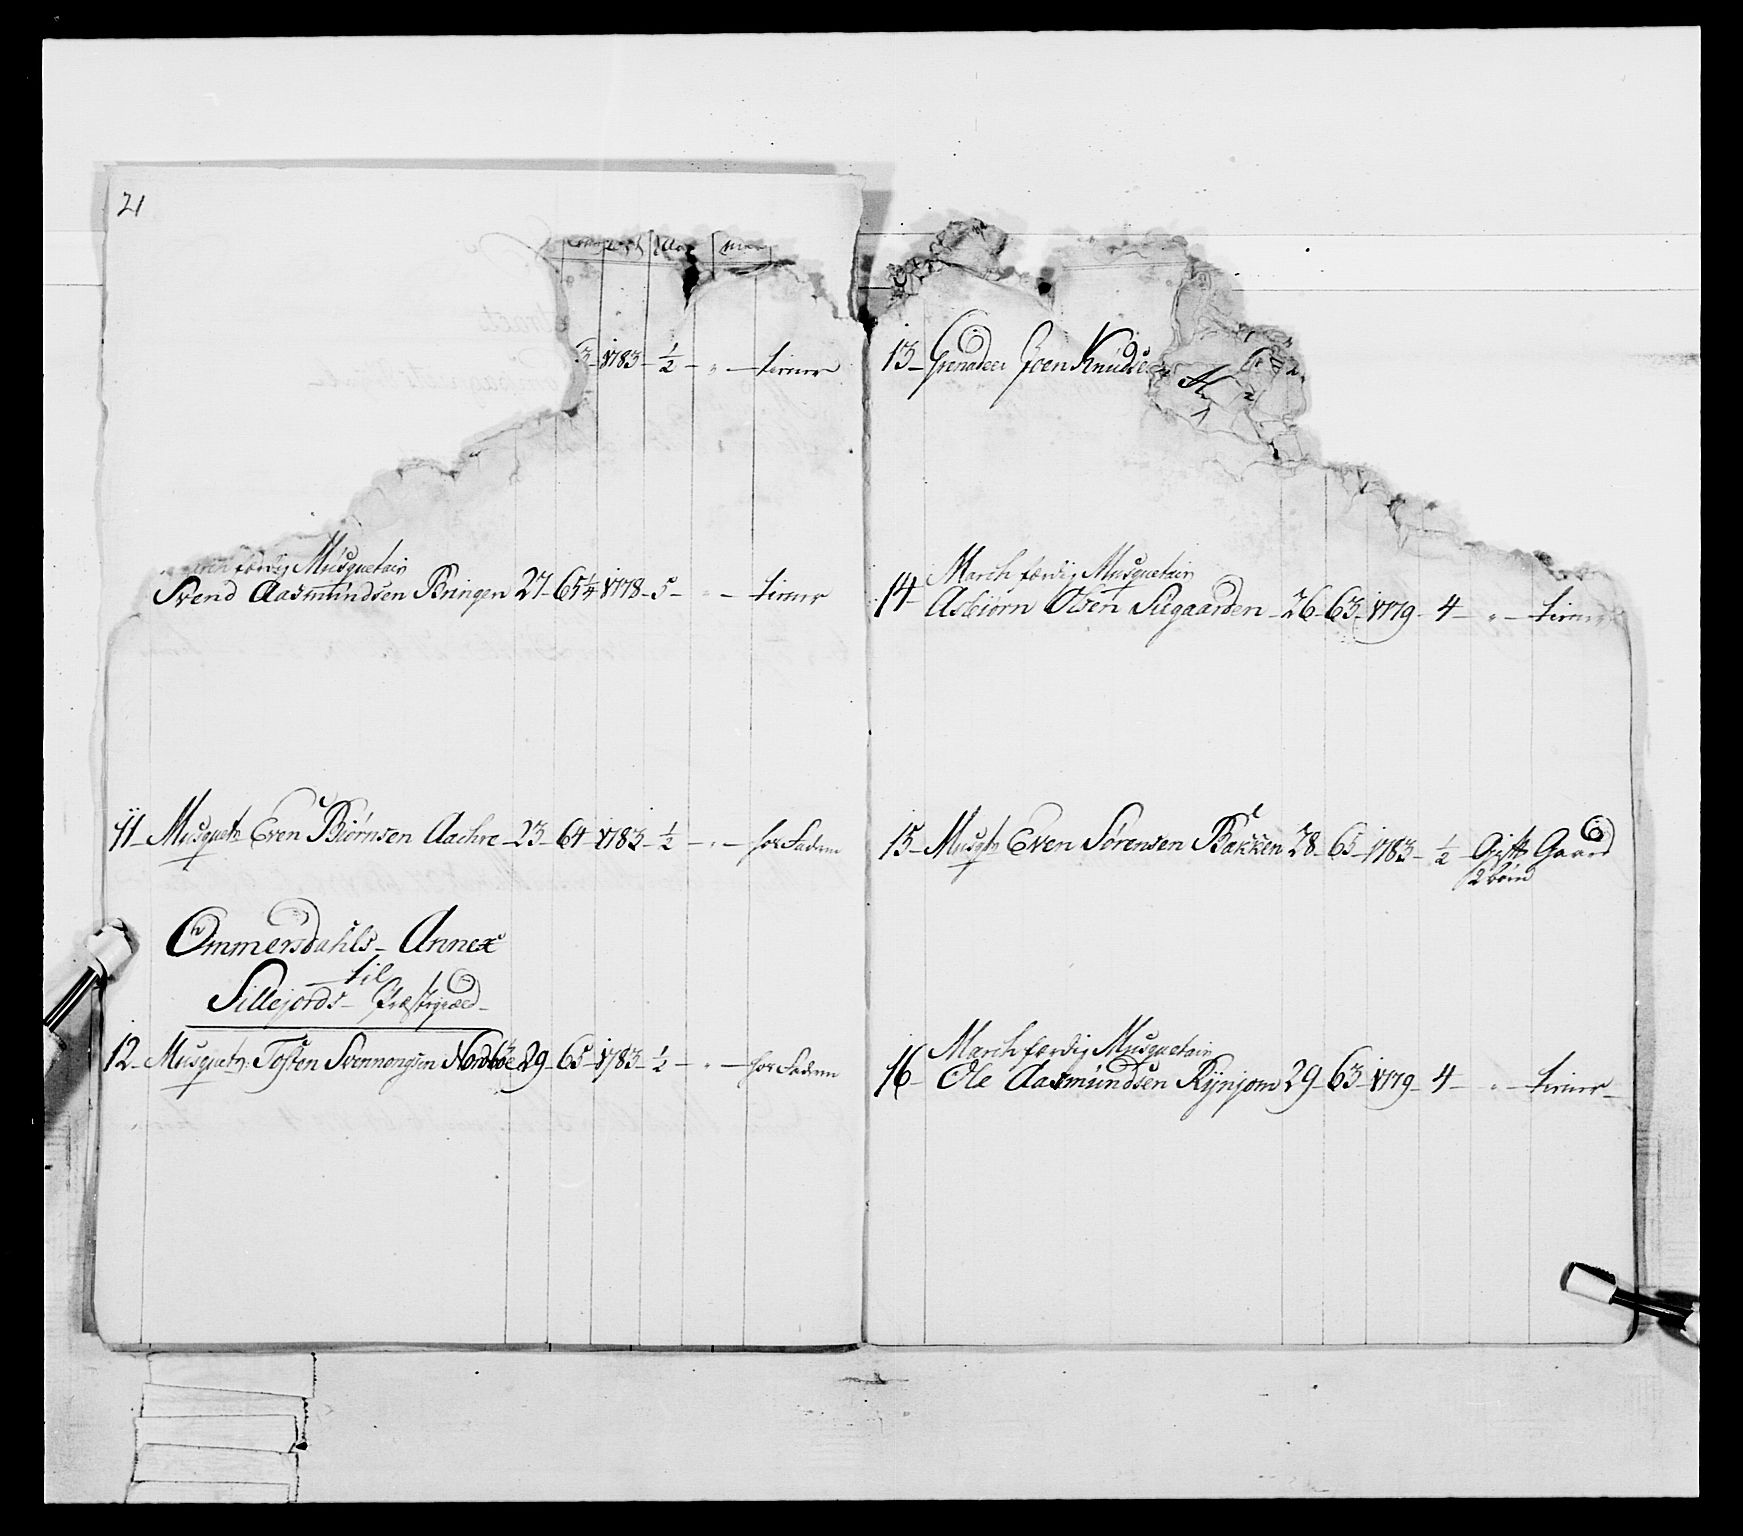 21
3 - 1783 - ½ - " - tiener
March færdig Musquetair
Svend Aasmundsen Bringen 27 - 65¼ - 1778 - 5 - " - tiener
11 - Musquetr Even Biørnsen Aachre - 23 - 64 - 1783 - ½ - " - hos Faderen
Ommersdahls - Annex
til
Sillejords - Præstegield -
12 - Musquetr Tosten Svennongsen Nordbøe 29 - 65 - 1783 - ½ - " - hos Faderen
13 - Grenadeer Joen Knudsen
14 - March færdig Musquetair
Asbiørn Olsen Siugaarden - 26 - 63 - 1779 - 4 - " - tiener
15 - Musqtr Even Sørensen Bakken 28 - 65 - 1783 - ½ - Gift Gaard
2 børn
March færdig Musquetair
16 - Ole Aasmundsen Rynjom 29 - 63 - 1779 - 4 - " - tiener -